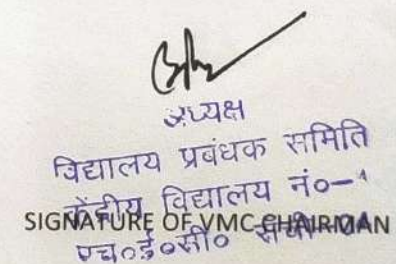 अध्यक्ष
विद्यालय प्रबंधक समिति
केंद्रीय विद्यालय नं०-१
SIGNATURE OF VMC CHAIRMAN
एच०ई०सी०